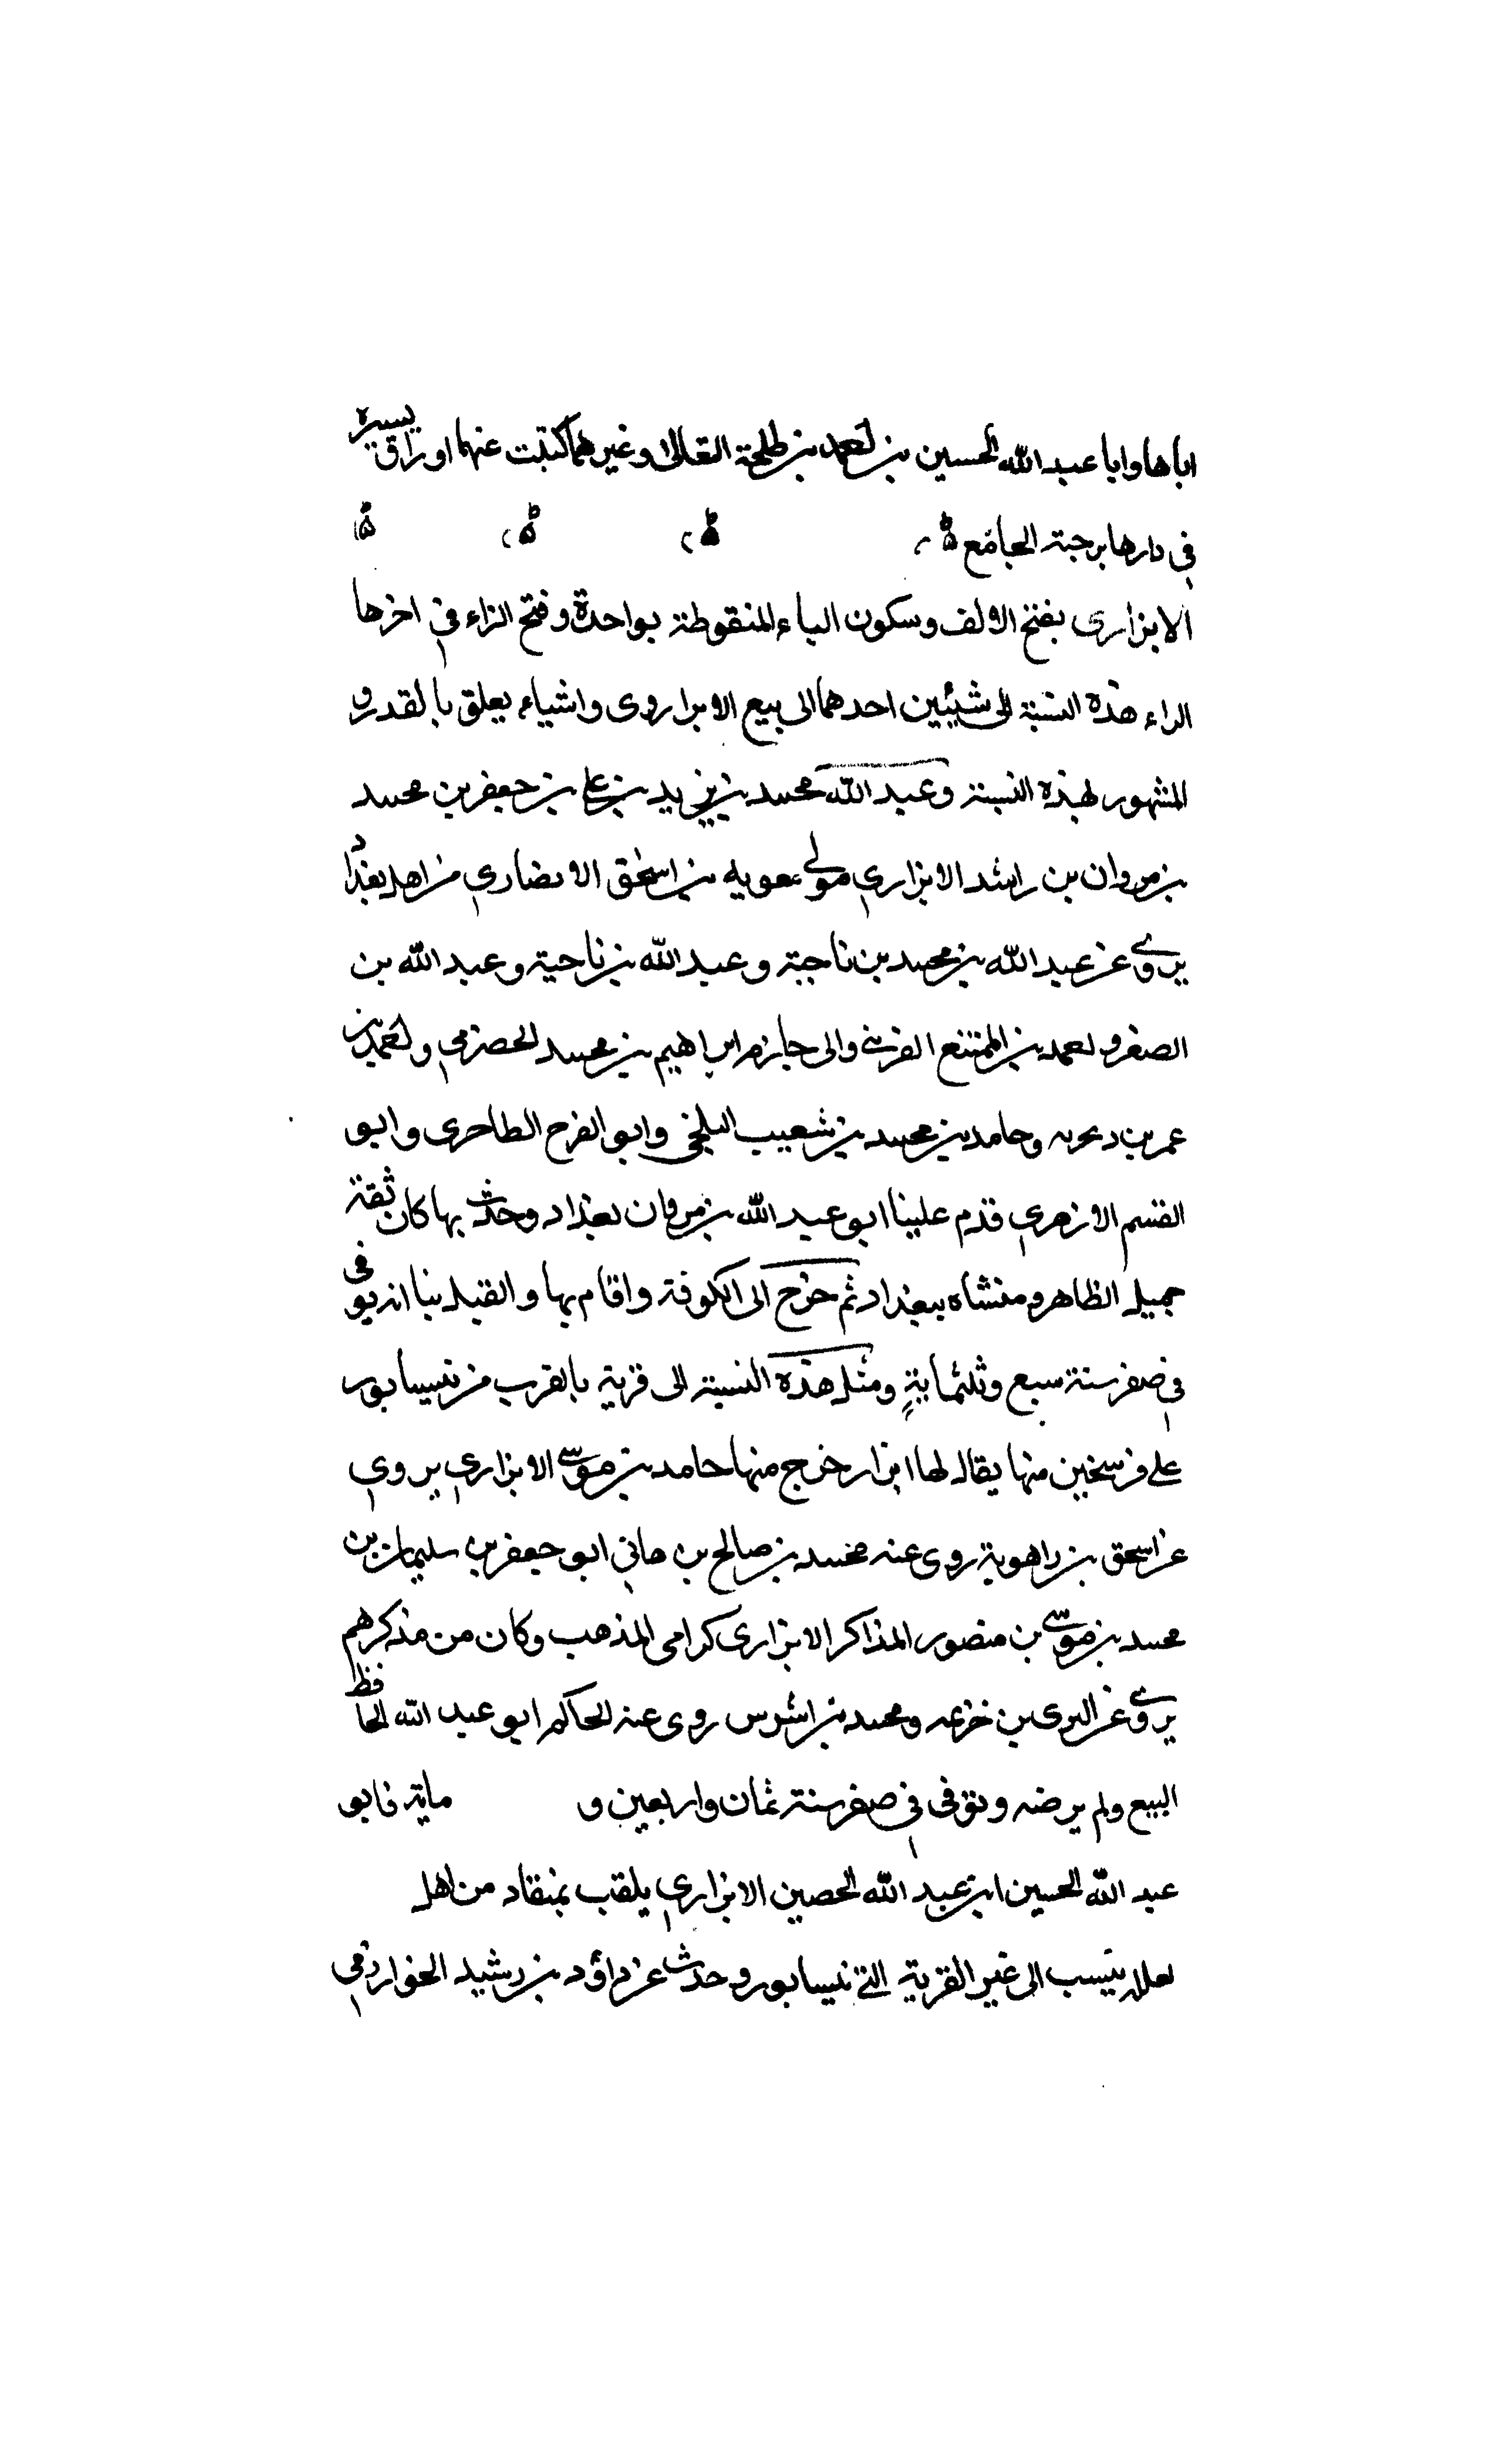 اباها وابا عبد الله الحسين بن احمد بن طلحة النعالى وغيرهما كتبت عنهما اوراق يسيره
فى دارها برحبة الجامع
الابزارى بفتح الالف وسكون الباء المنقوطة بواحدة وفتح الزاء فى اخرها
الراء هذه النسبة الى شيئين احدهما الى بيع الابزار وى واشياء يعلق بالقدر و
المشهور لهذه النسبة وعبد الله محمد بن يزيد بن على بن جعفر بن محمد
بن مروان بن راشد الابزارى مولى معويه بن اسحق الانصارى من اهل بغداد
يروى عن عبد الله بن محمد بن ناجية وعبد الله بن ناحية وعبد الله بن
الصقر و احمد بن الممتنع القرشى والى حازم ابراهيم بن محمد الحضرمى و احمد بن
عمر بن وحامد بن محمد بن شعيب البلخى وابو الفرح الطاحرى وابو
القسم الازهرى قدم علينا ابو عبد الله بن مروان بغداد وحدث بها كان ثقة
جميل الظاهر ومنشاه ببغداد ثم خرج الى الكوفة واقام بها و القيل بنا انه توفى
فى صفر سنة سبع وثلثماية ومثل هذه النسبة الى قرية بالقرب من نيسابور
على فرسخين منها يقال لها ابزار خرج منها حامد بن موسى الابزارى يروى
عن اسحق بن راهوية روى عنه محمد بن صالح بن هانى ابو جعفر بن سليمان بن
محمد بن موسى بن منصور المذاكر الابزارى كرامى المذهب وكان من مذكرهم
يروى عن البرى بن خزيمه ومحمد بن اشرس روى عنه الحاكم ابو عبد الله الحافظ
البيع ولم يرضه وتوفى فى صفر سنة ثمان واربعين و ماية فابو
عبد الله الحسين ابن عبد الله الحصين الابزارى يلقب بمنقاد من اهل
لعلل ينسب الى غير القرية التى نيسابور وحدث عن داؤد بن رشيد الخوارزمى